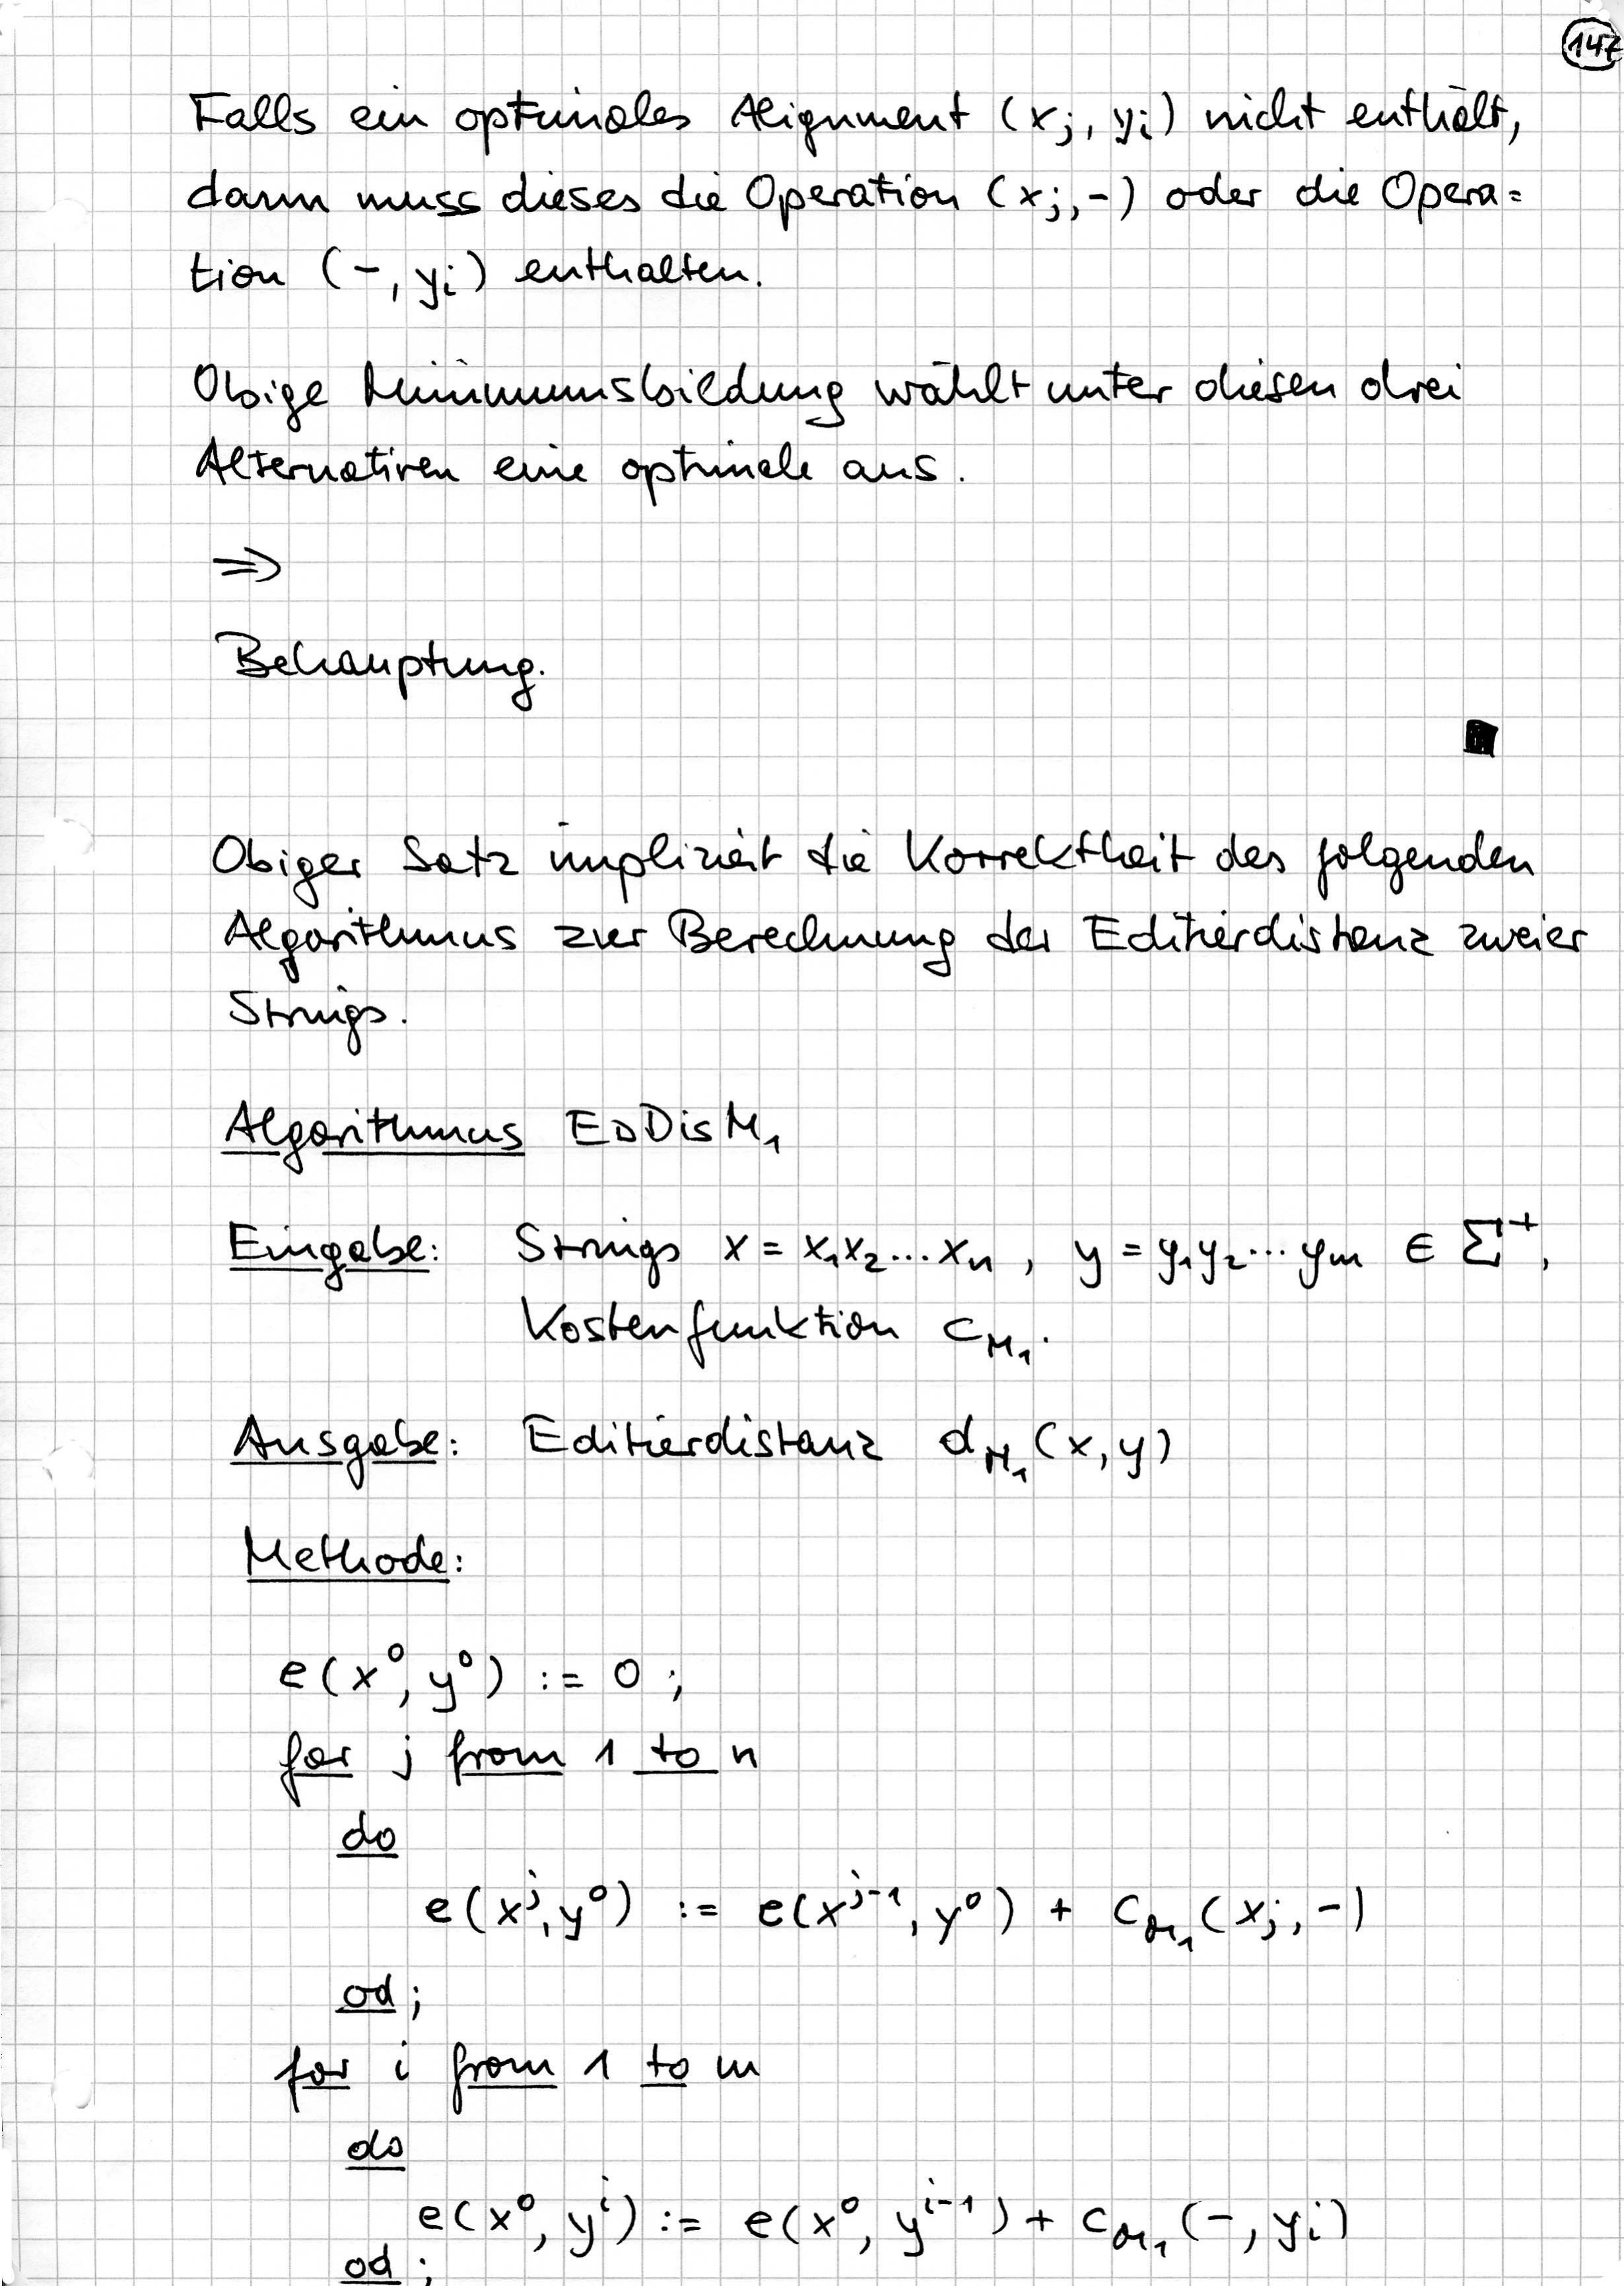 147
Falls ein optimales Alignment (x_j, y_i) nicht enthält,
dann muss dieses die Operation (x_j, -) oder die Opera=
tion (-, y_i) enthalten.
Obige Minimumsbildung wählt unter diesen drei
Alternativen eine optimale aus.
⇒
Behauptung.
Obiger Satz impliziert die Korrektheit des folgenden
Algorithmus zur Berechnung der Editierdistanz zweier
Strings.
Algorithmus EDDisM_1
Eingabe: Strings x = x_1x_2...x_n, y = y_1y_2...y_m ∈ Σ^+,
Kostenfunktion c_{M_1}.
Ausgabe: Editierdistanz d_{M_1}(x, y)
Methode:
e(x^0, y^0) := 0;
for j from 1 to n
do
e(x^j, y^0) := e(x^{j-1}, y^0) + c_{M_1}(x_j, -)
od;
for i from 1 to m
do
e(x^0, y^i) := e(x^0, y^{i-1}) + c_{M_1}(-, y_i)
od;